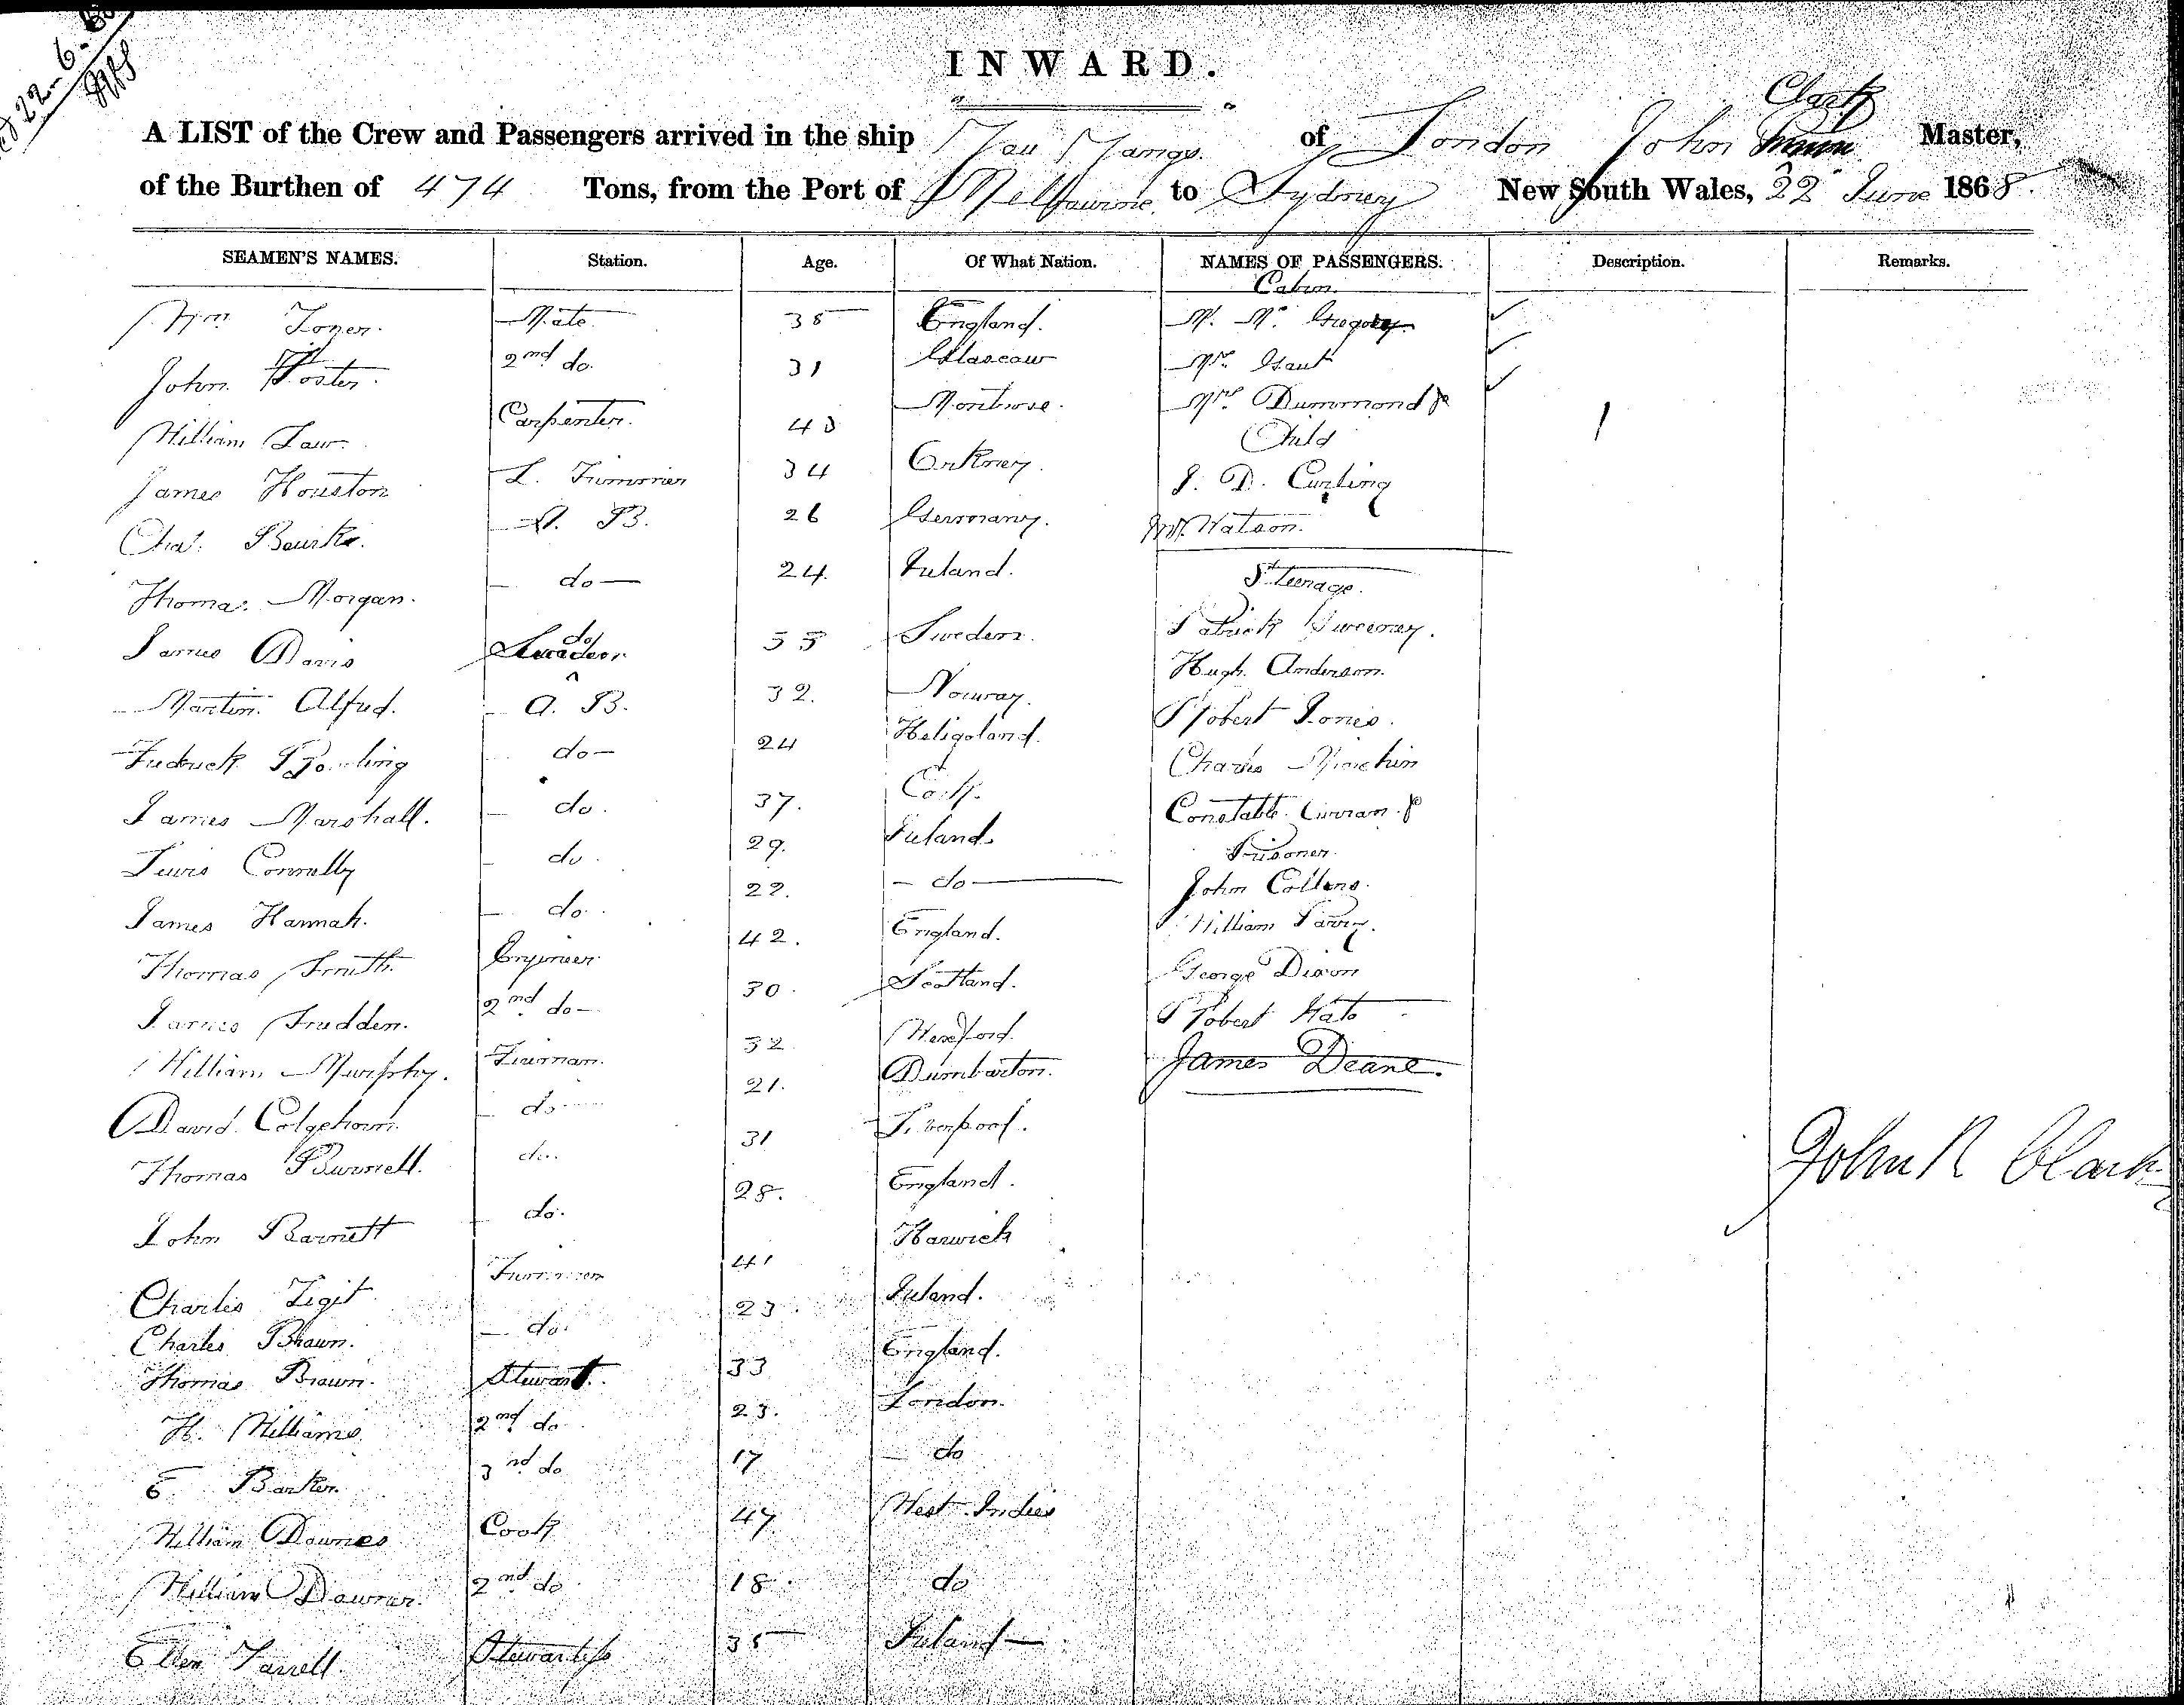 22-6-68
INWARD.
A LIST of the Crew and Passengers arrived in the ship You Yangs of London John Clark Master,
of the Burthen of 474 Tons, from the Port of Melbourne to Sydney New South Wales, 22 June 1868
SEAMEN'S NAMES. Station. Age. Of What Nation. NAMES OF PASSENGERS. Description. Remarks.
Cabin.
Wm Toner. Mate 35 England. M. Mc Gregory
John Foster. 2nd do. 31 Glascow Mrs Gaut
William Law. Carpenter. 43 Montrose. Mrs Dummond &
Child
James Houston L. Trimmer 34 Orkney. J. D. Curling
Chas. Bourke. A. B. 26 Germany. Watson.
Thomas Morgan. do 24. Ireland. Steerage.
James Davis do 53 Sweden. Patrick Sweeney.
Martin Alfred. A. B. 32. Norway. Hugh Anderson.
Fredrick Bowling do 24 Heligoland. Robert Jones.
James Marshall. do. 37. Cork. Charles Minchin
Lewis Connolly do. 29. Ireland. Constable Curran &
Prisoner.
James Hannah. do. 22. do John Collens.
Thomas Smith Engineer 42. England. William Parry.
James Frudden. 2nd do 30. Scotland. George Dixon
William Murphy. Fireman. 32 Hereford. Robert Kato
David Colqehoun. do 21. Dumbarton. James Deane.
Thomas Burnell. do. 31 Liverpool.
John R Clark
John Barnett do. 28. England.
Charles Ligit Trimmer 41 Harwich
Charles Brawn. do. 23 Ireland.
Thomas Brown. Stewart. 33 England.
H. Williams 2nd do. 23. London.
E Barker. 3rd do 17 do
William Downes Cook 47 West Indies
William Downer. 2nd do 18. do
Ellen Farrell. Stewartess 35 Ireland